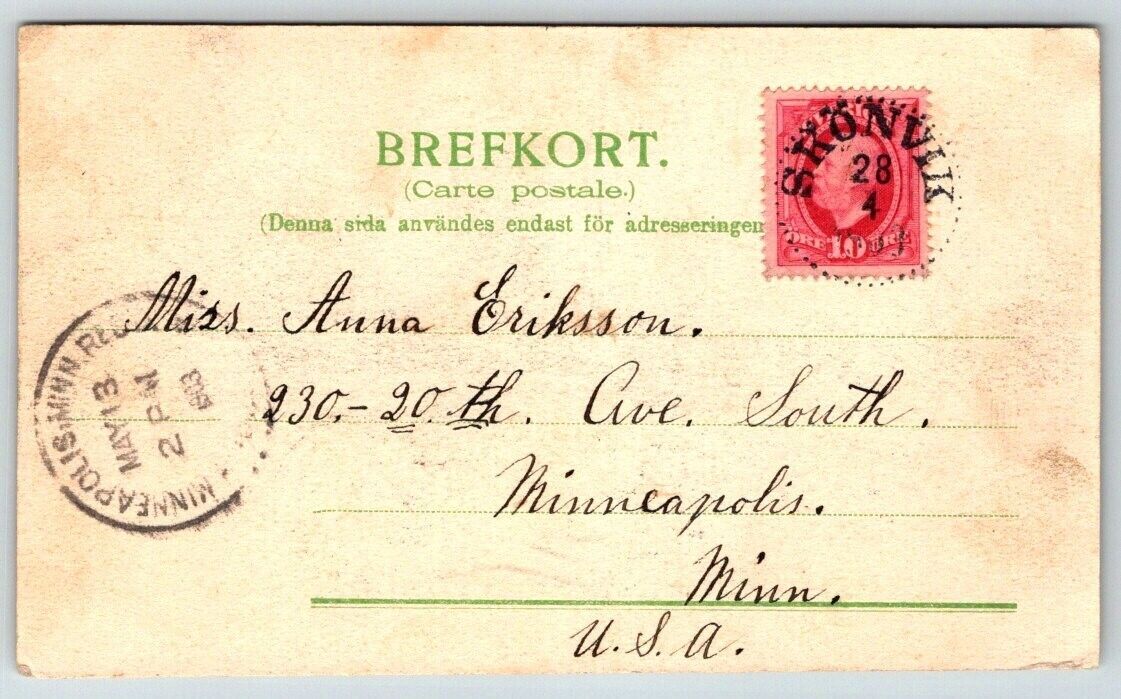 BREFKORT.
(Carte postale.)
(Denna sida användes endast för adresseringen
SKÖNVIK
28
4
ÖRE 10 ÖRE
Miss. Anna Eriksson.
230.- 20 th. Ave. South.
Minneapolis.
Minn.
U.S.A.
MINNEAPOLIS, MINN.
MAY 13
2 PM
1903